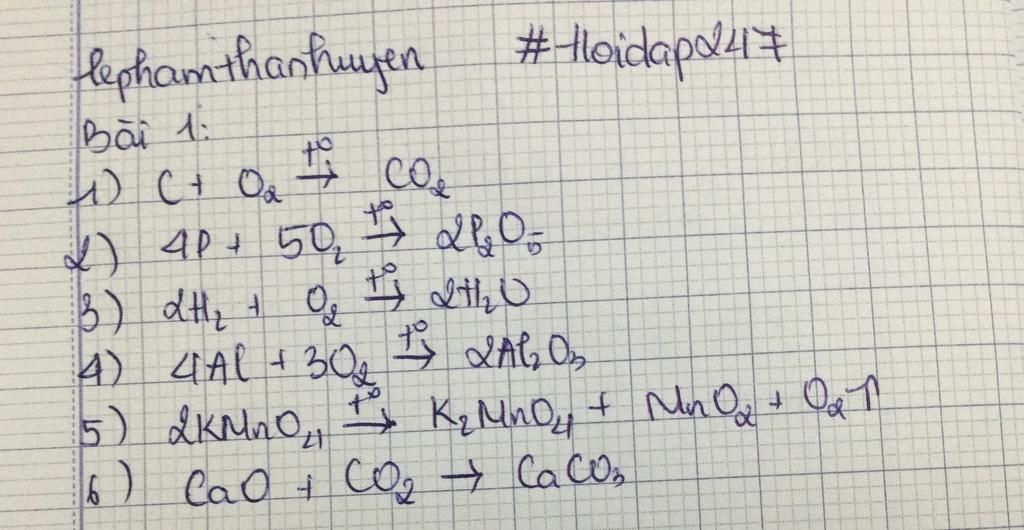 lephamthanhuyen #Hoidap247
Bài 1:
1) C + O₂ →(t°) CO₂
2) 4P + 5O₂ →(t°) 2P₂O₅
3) 2H₂ + O₂ →(t°) 2H₂O
4) 4Al + 3O₂ →(t°) 2Al₂O₃
5) 2KMnO₄ →(t°) K₂MnO₄ + MnO₂ + O₂↑
6) CaO + CO₂ → CaCO₃